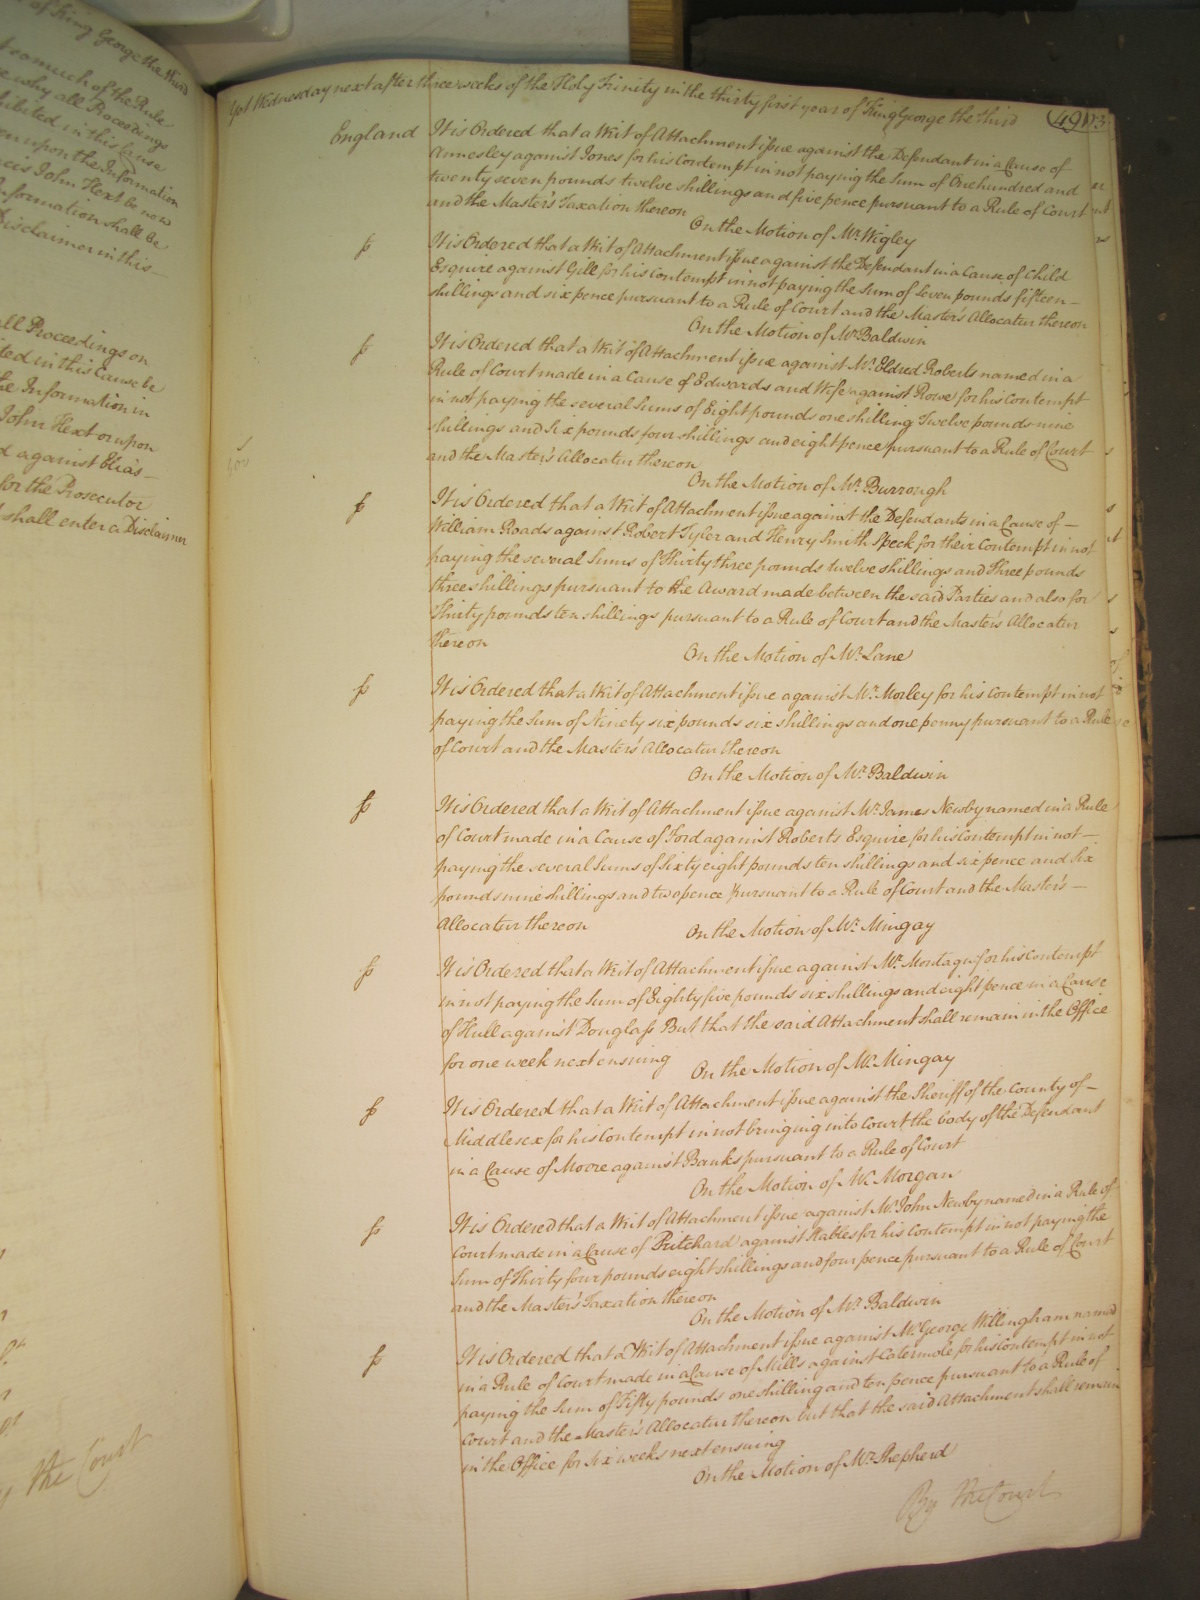 of King George the Third
so much of the Rule
why all Proceedings
exhibited in this Cause
upon the Information
John Hext be now
Information shall be
Disclaimer in this
all Proceedings on
in this Cause be
the Information in
John Hext or upon
against Elias
for the Prosecutor
shall enter a Disclaimer
By the Court
Yet Wednesday next after three weeks of the Holy Trinity in the thirty first year of King George the third
England
It is Ordered that a Writ of Attachment issue against the Defendant in a Cause of
Annesley against Jones for his Contempt in not paying the Sum of One hundred and
twenty seven pounds twelve shillings and five pence pursuant to a Rule of Court
and the Master's Taxation thereon
On the Motion of Mr. Wigley
It is Ordered that a Writ of Attachment issue against the Defendant in a Cause of Child
Esquire against Gill for his Contempt in not paying the Sum of Seven pounds fifteen
shillings and six pence pursuant to a Rule of Court and the Master's Allocatur thereon
On the Motion of Mr. Baldwin
It is Ordered that a Writ of Attachment issue against Mr. Eldred Roberts named in a
Rule of Court made in a Cause of Edwards and Wife against Rowe for his Contempt
in not paying the several Sums of Eight pounds one shilling Twelve pounds nine
shillings and Six pounds four shillings and eight pence pursuant to a Rule of Court
and the Master's Allocatur thereon
On the Motion of Mr. Burrough
It is Ordered that a Writ of Attachment issue against the Defendants in a Cause of
William Roads against Robert Tyler and Henry Smith Speck for their Contempt in not
paying the several Sums of Thirty three pounds twelve shillings and Three pounds
three shillings pursuant to the Award made between the said Parties and also for
Thirty pounds ten shillings pursuant to a Rule of Court and the Master's Allocatur
thereon
On the Motion of Mr. Lane
It is Ordered that a Writ of Attachment issue against Mr. Morley for his Contempt in not
paying the Sum of Ninety six pounds six shillings and one penny pursuant to a Rule
of Court and the Master's Allocatur thereon
On the Motion of Mr. Baldwin
It is Ordered that a Writ of Attachment issue against Mr. James Newby named in a Rule
of Court made in a Cause of Ford against Roberts Esquire for his Contempt in not
paying the several Sums of Sixty eight pounds ten shillings and six pence and Six
pounds nine shillings and two pence pursuant to a Rule of Court and the Master's
Allocatur thereon
On the Motion of Mr. Mingay
It is Ordered that a Writ of Attachment issue against Mr. Montagu for his Contempt
in not paying the Sum of Eighty five pounds six shillings and eight pence in a Cause
of Hull against Douglass But that the said Attachment shall remain in the Office
for one week next ensuing
On the Motion of Mr. Mingay
It is Ordered that a Writ of Attachment issue against the Sheriff of the County of
Middlesex for his Contempt in not bringing into Court the body of the Defendant
in a Cause of Moore against Banks pursuant to a Rule of Court
On the Motion of Mr. Morgan
It is Ordered that a Writ of Attachment issue against Mr. John Newby named in a Rule of
Court made in a Cause of Pritchard against Stables for his Contempt in not paying the
Sum of Thirty four pounds eight shillings and four pence pursuant to a Rule of Court
and the Master's Taxation thereon
On the Motion of Mr. Baldwin
It is Ordered that a Writ of Attachment issue against Mr. George Willingham named
in a Rule of Court made in a Cause of Mills against Catermole for his Contempt in not
paying the Sum of Fifty pounds one shilling and ten pence pursuant to a Rule of
Court and the Master's Allocatur thereon but that the said Attachment shall remain
in the Office for Six weeks next ensuing
On the Motion of Mr. Shepherd
By the Court